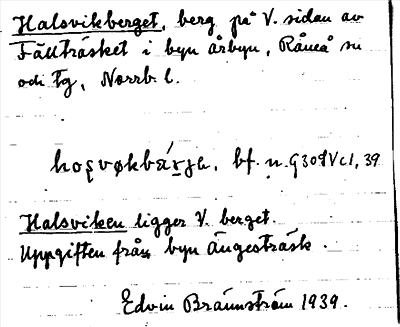 Halsvikberget, berg på V. sidan av
Fällträsket i byn Årbyn, Råneå sn
och tg, Norrb. l.
bf. n.
Halsviken ligger V. berget.
Uppgiften från byn Ängesträsk.
Edvin Brännström 1939.